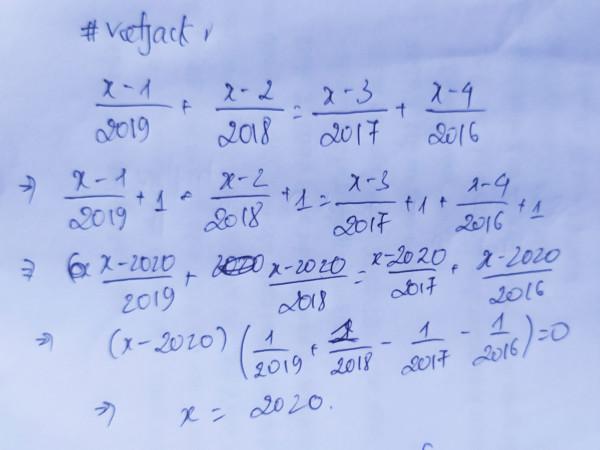 #vietjack
x-1/2019 + x-2/2018 = x-3/2017 + x-4/2016
=> x-1/2019 + 1 + x-2/2018 + 1 = x-3/2017 + 1 + x-4/2016 + 1
=> x-2020/2019 + x-2020/2018 = x-2020/2017 + x-2020/2016
=> (x-2020) (1/2019 + 1/2018 - 1/2017 - 1/2016) = 0
=> x = 2020.